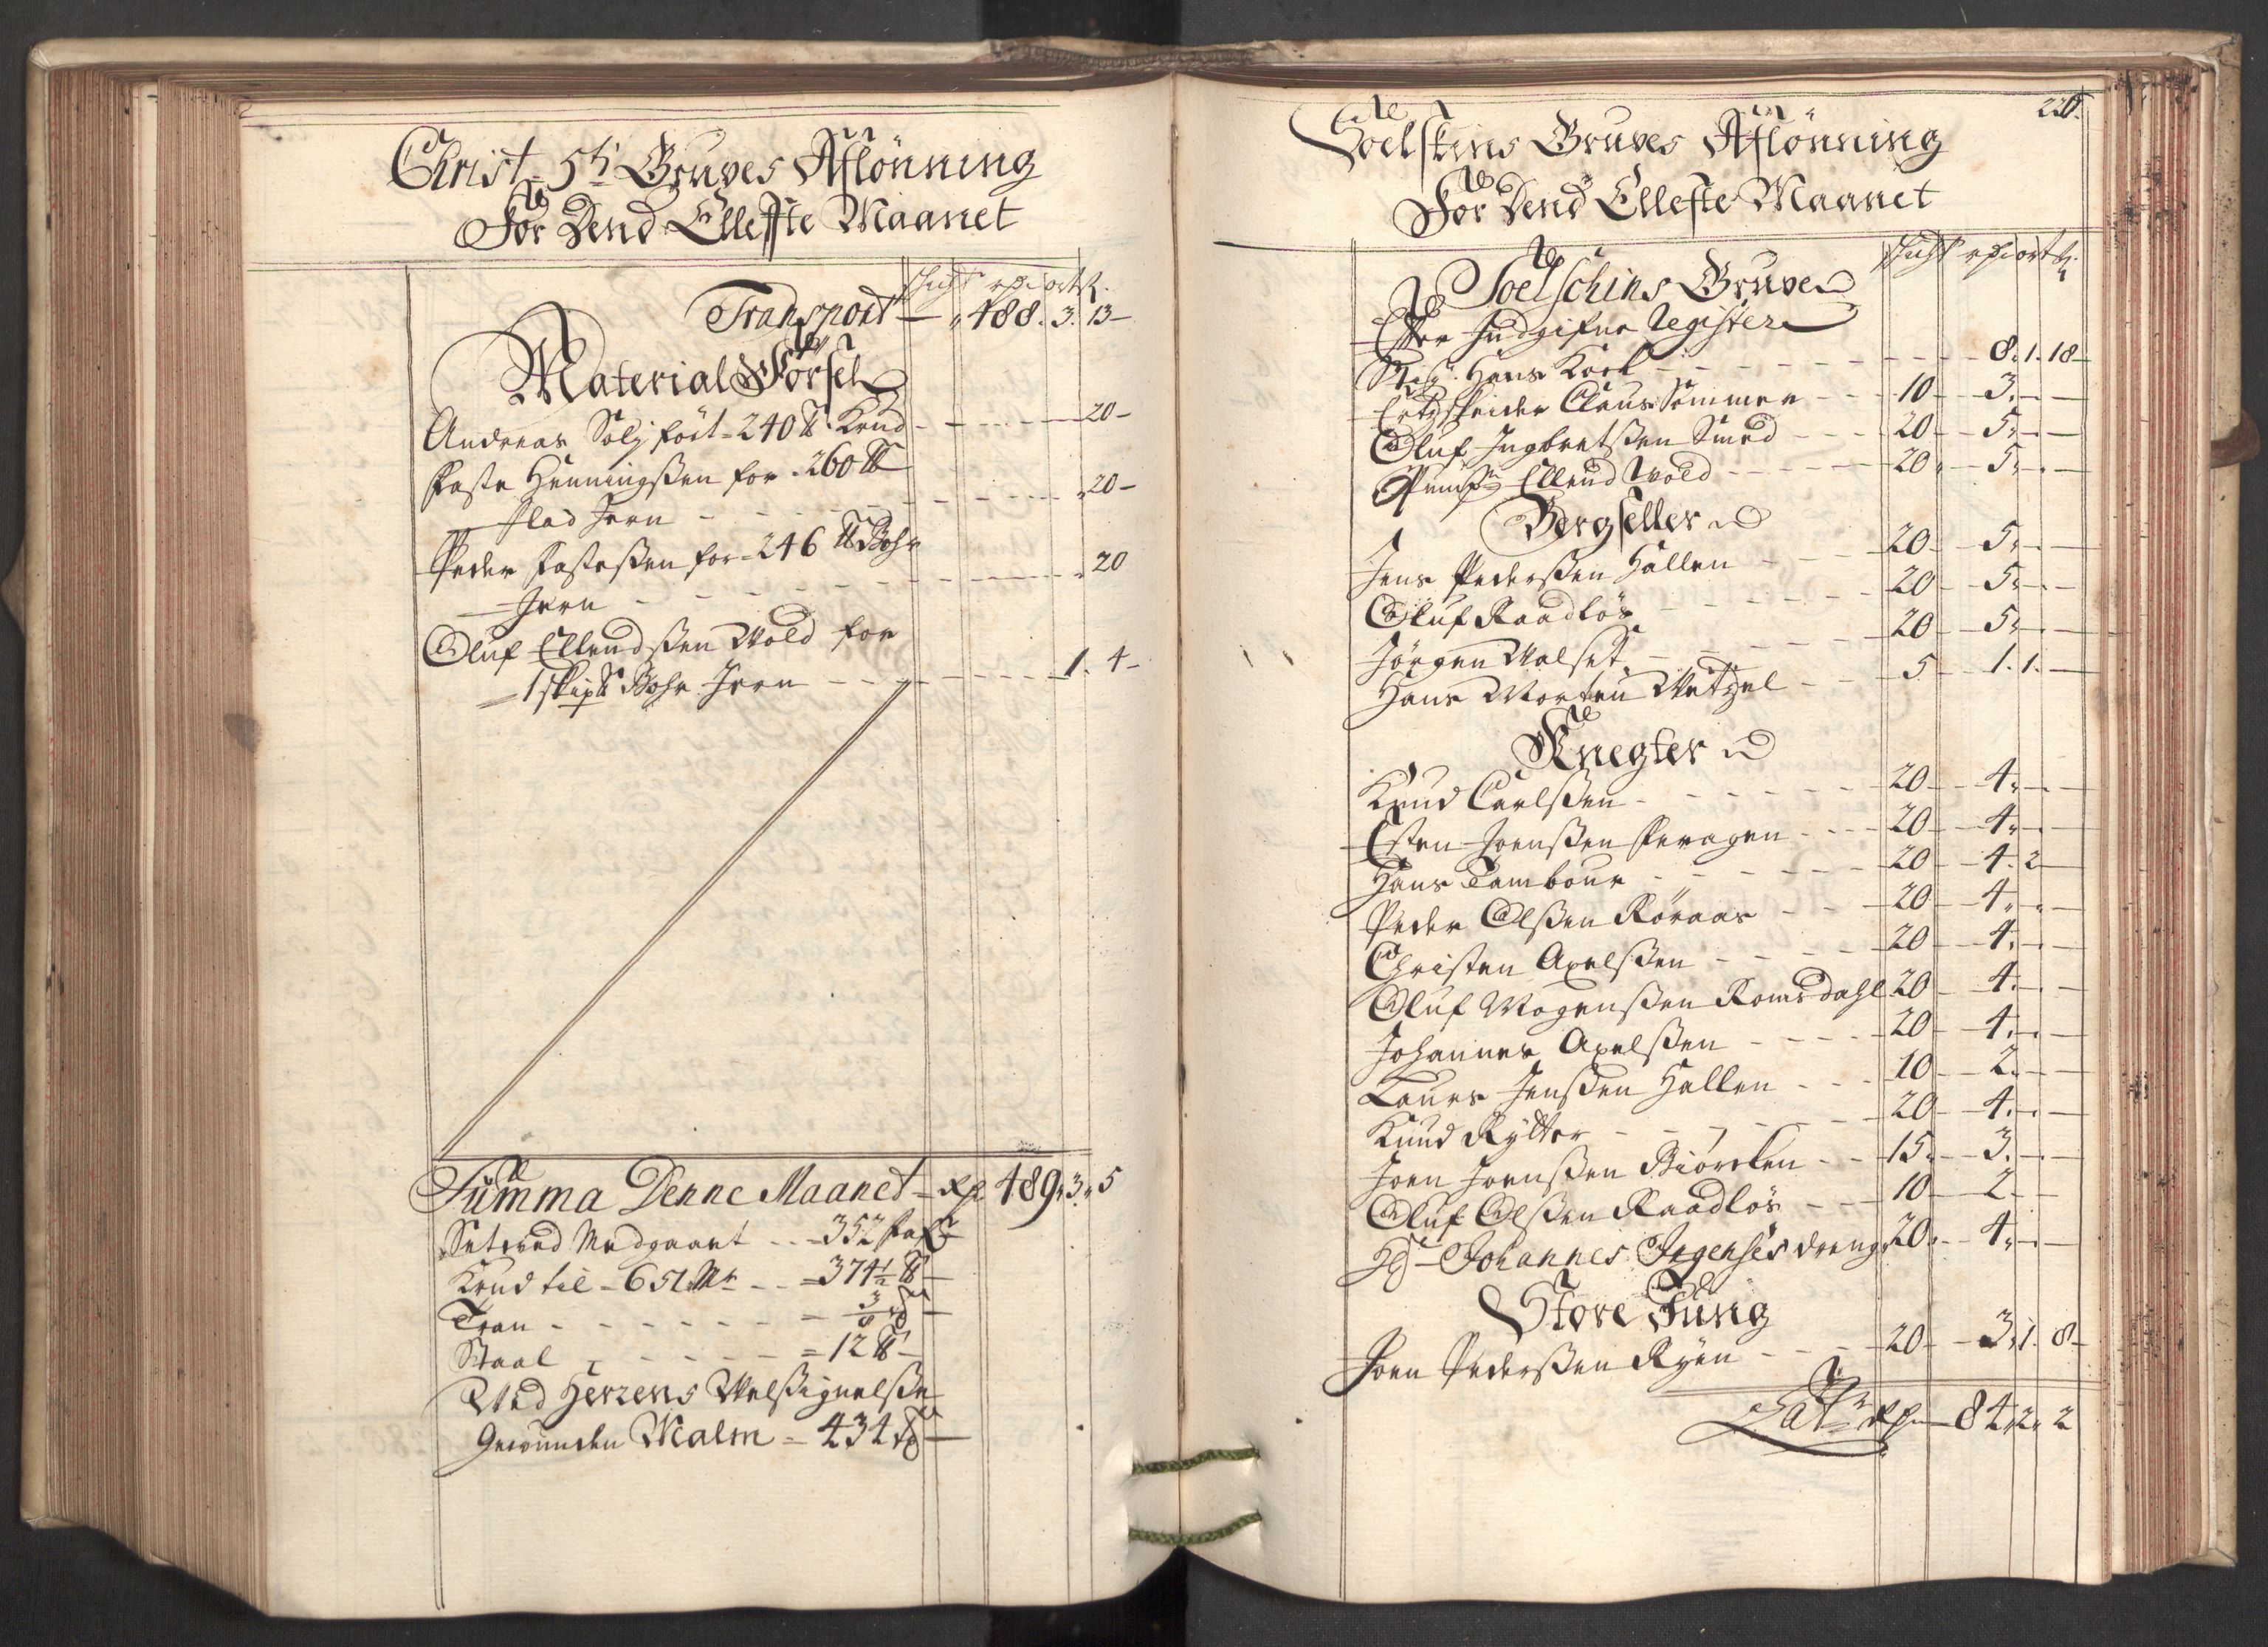 Christ. 5ti Gruves Aflönning
For Dend Elleffte Maanet
schigt rp ort ß.
Transport — " 488. 3. 13 —
Material Försel
Andreas Solj fört = 240 ℔ Krud - - - - 20 -
Faste Henningssen for - 260 ℔
flad Jern - - - - 20 -
Peder Fastessen for = 246 ℔ Bohr
Jern - - - - 20
Oluf Ellendssen Wold for
1 skip℔ Bohr Jern - - - - 1. 4 -
Summa Denne Maanet - Rp 489. 3. 5
Setved Medgaaet - - = 352 fafn
Krud til - 651 Mr - - = 374½ ℔ -
Tran - - - - = 3/8 td -
Staal - - - - = 12 ℔ -
Ved Herrens Velssignelsse
Gewunden Malm = 434 td —
220.
Soelskins Gruves Aflönning
For Dend Elleffte Maanet
schigt rp ort ß.
Soelschins Gruve
Efter Indgifne Register
Stig. Hans Kork - - - - 8. 1. 18 -
Ertzskeider Claus Sommer - - 10 - 3. - -
Oluf Ingbretssen Smed - - - 20 - 5. - -
Ellend Wold - - - - 20 - 5. - -
Bergseller
Jens Pederssen Hallen - - 20 - 5. - -
Oluf Raadlös - - - - 20 - 5. - -
Jörgen Walset - - - - 20 - 5. - -
Hans Morten Wetzel - - 5 - 1. 1. -
Knegter
Knud Carlssen - - - - 20 - 4. - -
Esten Joenssen Feragen - - - 20 - 4. - -
Hans Tambour - - - - 20 - 4. 2 -
Peder Olssen Röraas - - - 20 - 4. - -
Christen Axelssen - - - - 20 - 4. - -
Oluf Mogenssen Romsdahl 20 - 4. - -
Johannes Axelssen - - - - 20 - 4. - -
Laurs Jenssen Hallen - - - 10 - 2. - -
Knud Rytter - - - - 20 - 4. - -
Joen Joenssen Biörcken - - 15. - 3. - -
Oluf Olssen Raadlös - - - 10 - 2. - -
Johannes Irgenses dreng 20. - 4. - -
Store Jung
Joen Pederssen Ryen - - - 20 - 3. 1. 8 -
Lats Rp - 84. 2. 2